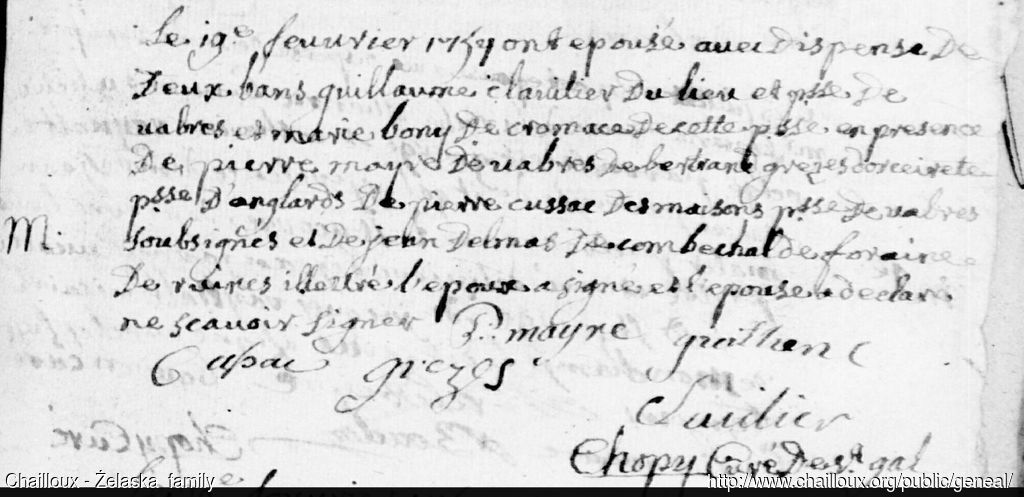 Le 19e feuurier 1759 ont epousé auec dispense De
Deux bans guillaume clauilier Du lieu et psse De
uabres et marie bony De cromace De cette psse en presence
De pierre mayre De uabres De bertrand grezes
psse D'anglards De pierre cussac Des maisons psse De uabres
M. soubsignes et De jean Delmas De combechal de foraine
De illettré l'epoux a signé et l'epouse a declaré
ne scauoir signer P. mayre guilhen
Cussac grezes
Clauilier
Chopy Curé De st gal
Chailloux - Żelaska family
http://www.chailloux.org/public/geneal/